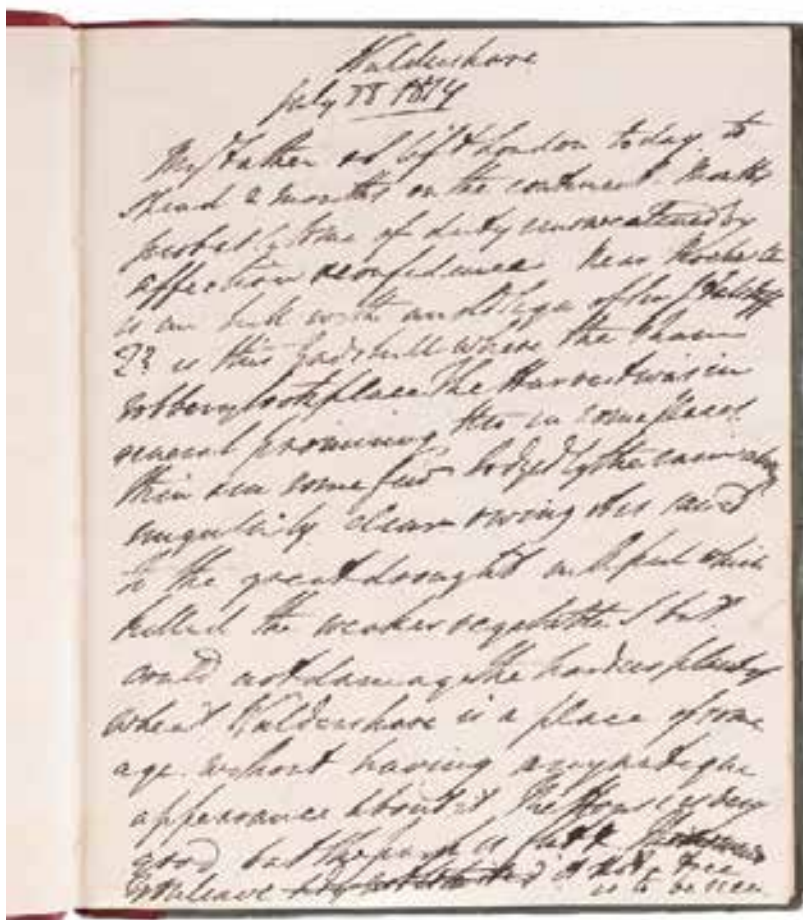 Waldershare
July 1874
My Father & I left London today to
spend 2 months on the continent. Months
probably some of duty unsweetened by
affection or confidence. Near
is an with an of Sir J Falstaff
is this Gadshill where the
robbery took place. The Harvest was in
general promising, tho in some places
thin and some few lodged by the
singularly clear owing it is said
to the great drought in April which
killed the weaker vegetable but
could not damage the hardier plant of
wheat. Waldershare is a place of some
age without having any antique
appearance about it. The House is very
good but the park is
leave not a tree
is to be seen